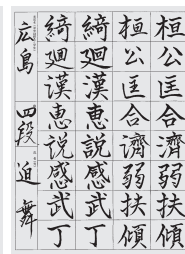 桓公匡合濟弱扶傾
桓公匡合濟弱扶傾
綺廻漢恵説感武丁
綺廻漢恵説感武丁
広島 四段 迫 舞